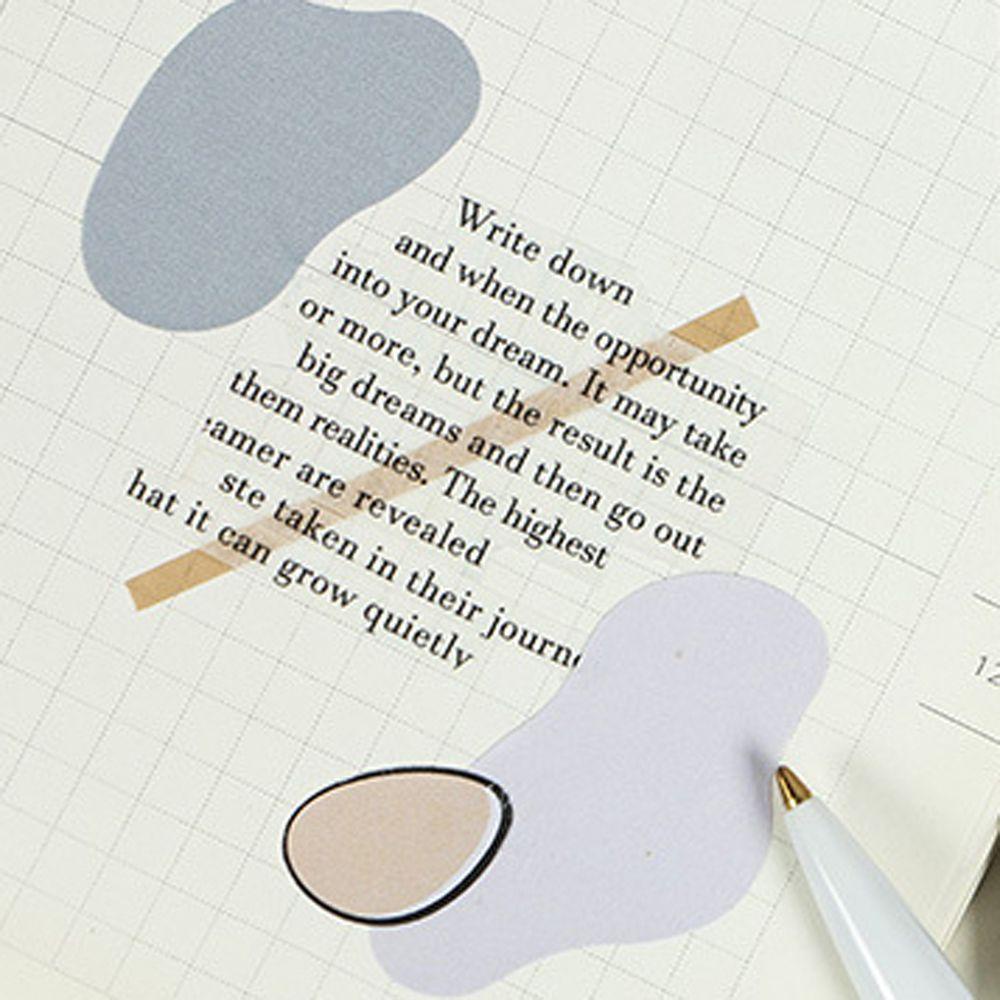 Write down
and when the opportunity
into your dream. It may take
or more, but the result is the
big dreams and then go out
them realities. The highest
eamer are revealed
ste taken in their journe
hat it can grow quietly
12